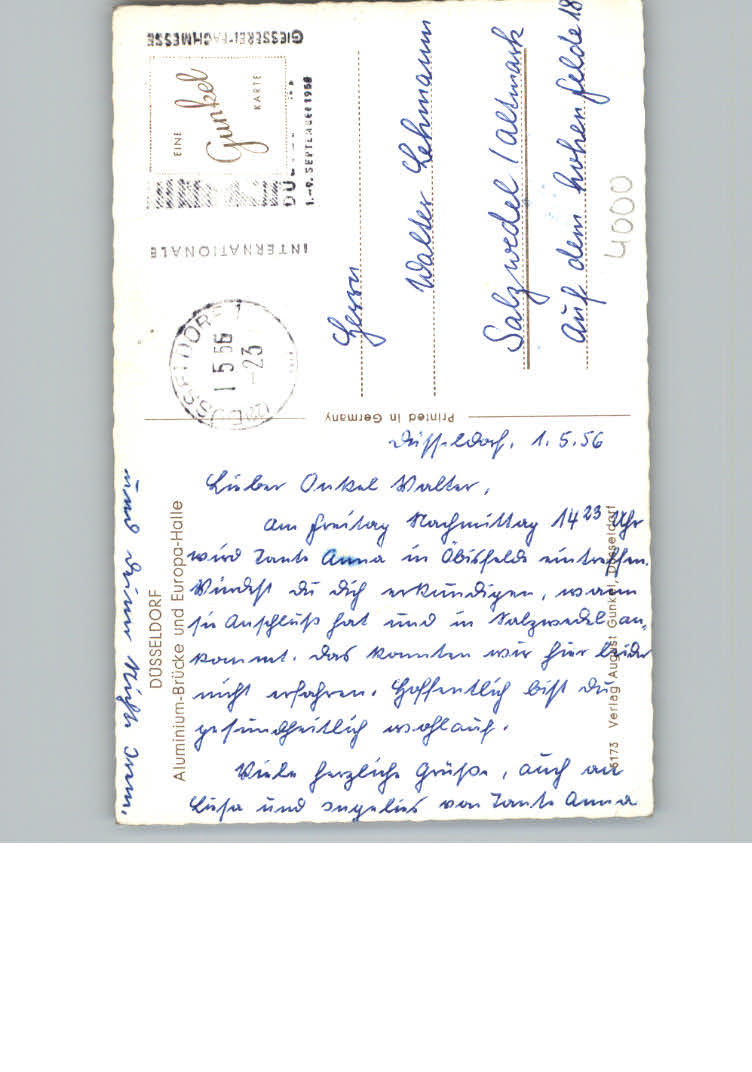 GIESSEREI-FACHMESSE
EINE
Gunkel
KARTE
1.-9. SEPTEMBER 1956
INTERNATIONALE
DÜSSELDORF 1
1 5 56
-23
Herrn
Walter Lehmann
Salzwedel / Altmark
Auf dem hohen felde 18
4000
Printed in Germany
Düsseldorf, 1.5.56
Lieber Onkel Walter,
Am Freitag Nachmittag 14 23 Uhr
wird Tante Anna in Öbisfelde eintreffen.
Würdest du dich erkundigen, wann
sie Anschluß hat und in Salzwedel an-
kommt. Das konnten wir hier leider
nicht erfahren. Hoffentlich bist du
gesundheitlich wohlauf.
Viele herzliche Grüße, auch an
Luise und von Tante Anna
und deiner Nichte
DÜSSELDORF
Aluminium-Brücke und Europa-Halle
6173 Verlag August Gunkel, Düsseldorf